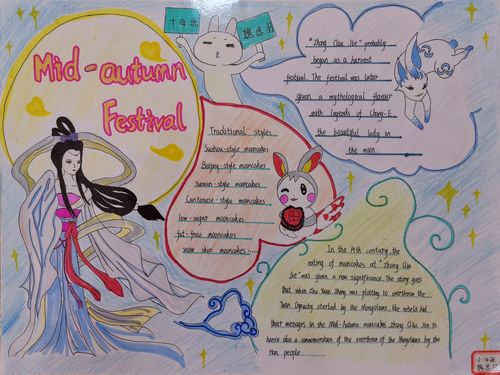 Mid-autumn
Festival
"Zhong Qiu Jie" probably
began as a harvest
festival. The festival was later
given a mythological flavour
with legends of Chang-E,
the beautiful lady in
the moon.
Traditional styles
Suzhou-style mooncakes
Beijing-style mooncakes
Yunnan-style mooncakes
Cantonese-style mooncakes
low-sugar mooncakes
fat-free mooncakes
snow skin mooncakes
In the 14th century, the
eating of mooncakes at "Zhong Qiu
Jie" was given a new significance. The story goes
that when Zhu Yuan Zhang was plotting to overthrow the
Yuan Dynasty started by the Mongolians, the rebels hid
their messages in the Mid-Autumn mooncakes. Zhong Qiu Jie is
hence also a commemoration of the overthrow of the Mongolians by the
Han people.